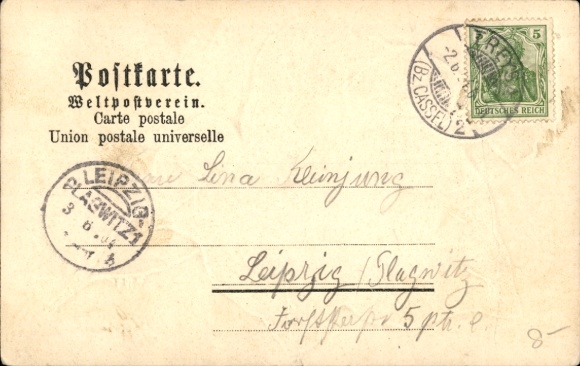 Postkarte.
Weltpostverein.
Carte postale
Union postale universelle
TREYSA
(BZ. CASSEL) 2
5
DEUTSCHES REICH
LEIPZIG-
PLAGWITZ 1
Lina Kleinjung
Leipzig / Plagwitz
5 ptr. l.
8-